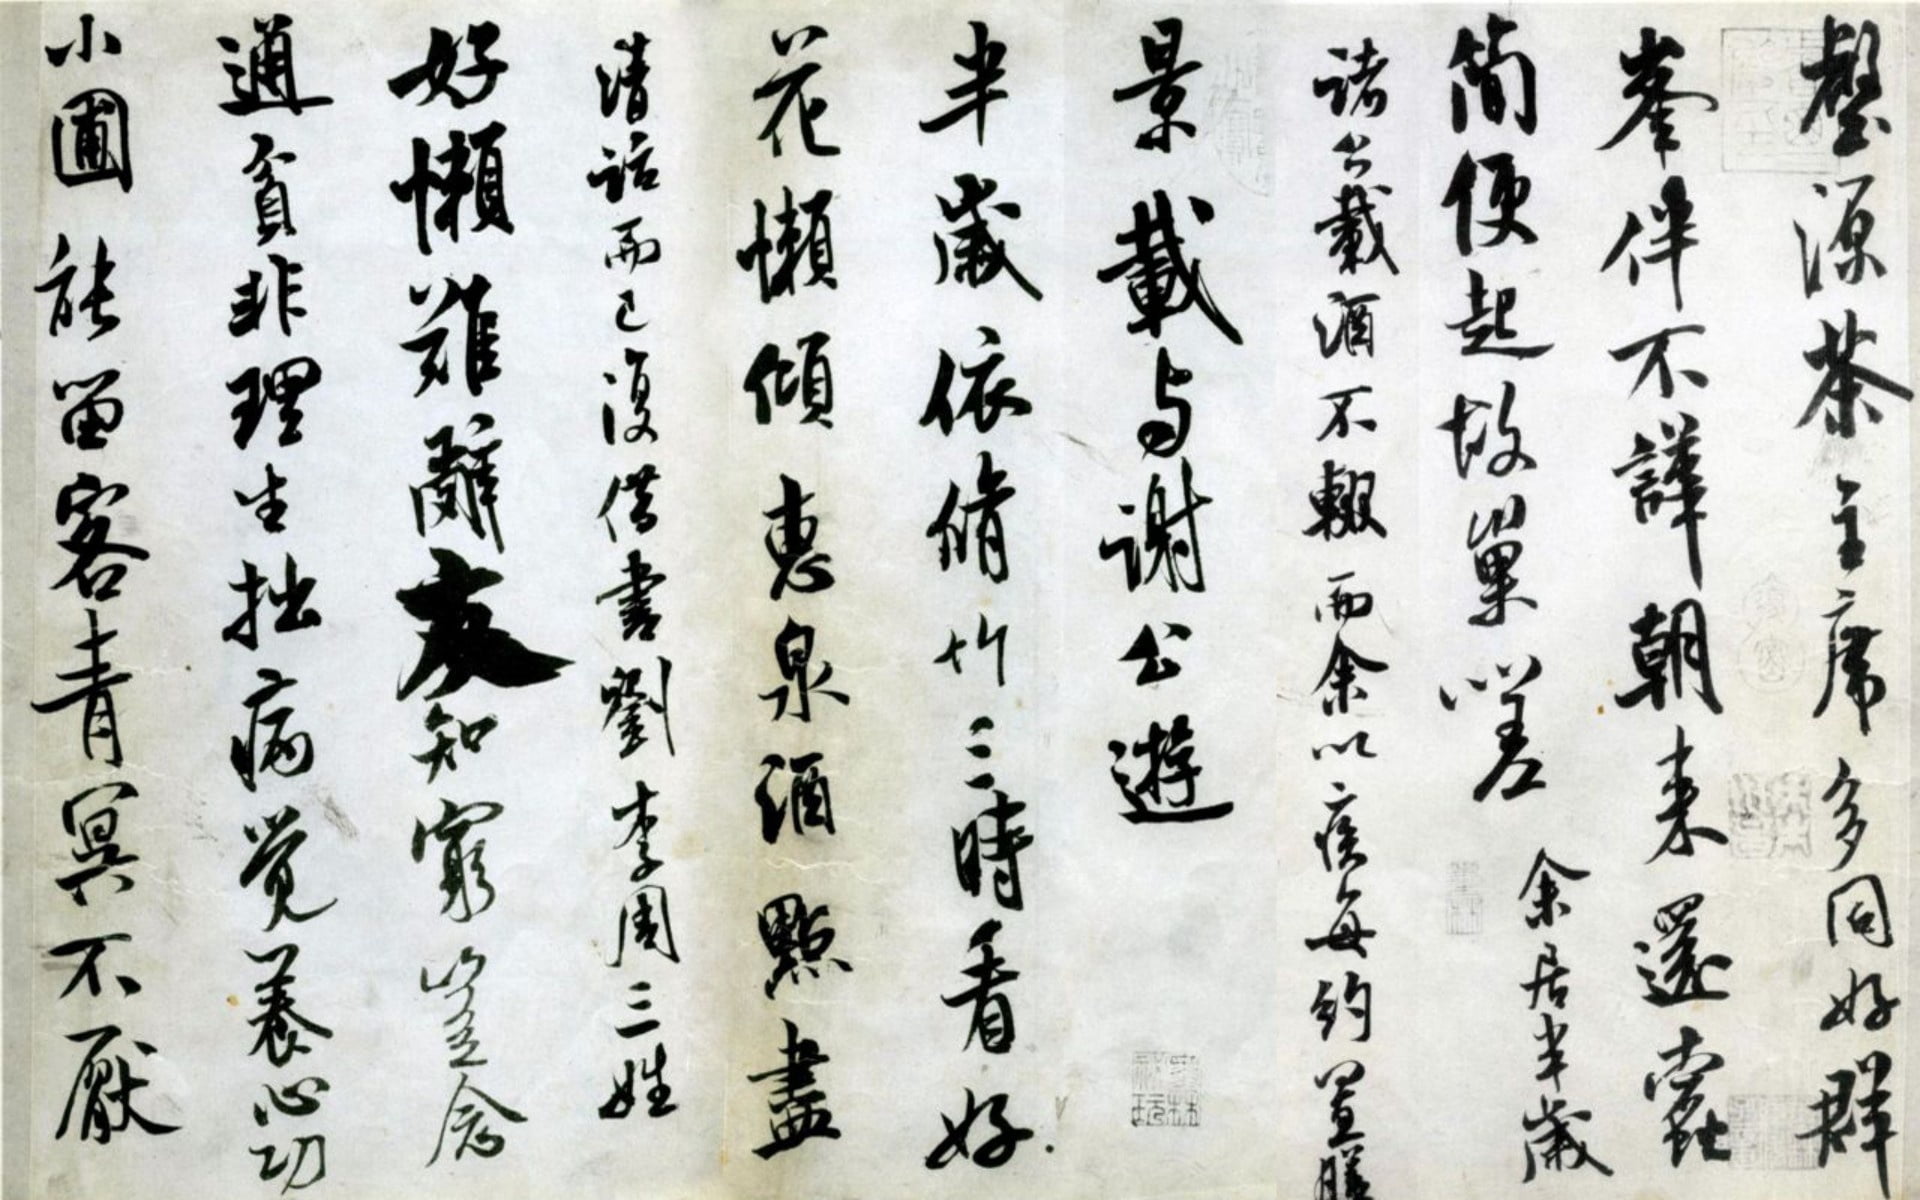 壑源茶主席多同好群
峯伴不譁朝来還蠧
簡便起故巢嗟
余居半歲
諸公載酒不輟而余以疾每約置膳
景載与謝公遊
半歲依脩竹三時看好
花懶傾惠泉酒點盡
清話而已復借書劉李周三姓
好懶難辭友知窮豈念
通貧非理生拙病覺養心功
小圃能留客青冥不厭